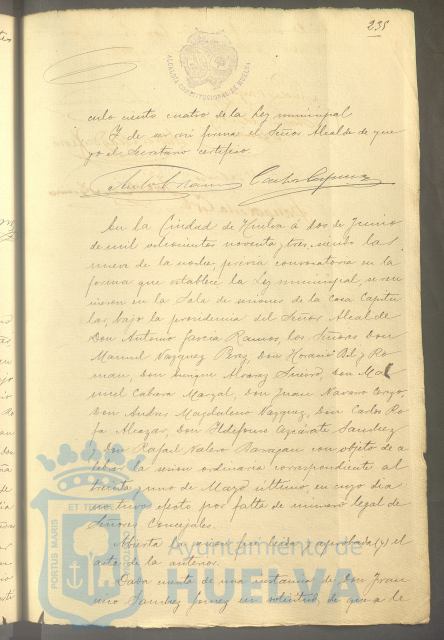 235
ALCALDIA CONSTITUCIONAL DE HUELVA
culo ciento cuatro de la Ley municipal
Y de ser así firma el Señor Alcalde de que
yo el Secretario certifico.
En la Ciudad de Huelva á dos de Junio
de mil ochocientos noventa y tres, siendo las
nueve de la noche, previa convocatoria en la
forma que establece la Ley municipal, se reu
nieron en la Sala de sesiones de la Casa Capitu
lar, bajo la presidencia del Señor Alcalde
Don Antonio García Ramos, los Señores Don
Manuel Vazquez Perez, Don Horacio Bel y Ro
man, Don Enrique Alvarez, Don Ma
nuel Cabora Marzal, Don Juan Navarro
Don Andres Magdaleno Vazquez, Don Carlos Ro
fa Alcazar, Don Ildefonso Azcárate Sanchez
y Don Rafael Valero Barragan con objeto de ce
lebrar la sesion ordinaria correspondiente al
treinta y uno de Mayo último, en cuyo dia
no tuvo efecto por falta de número legal de
Señores Concejales.
Abierta la sesion fue leida y aprobada (y) el
acta de la anterior.
Dada cuenta de una instancia de Don Fran
cisco Sanchez en solicitud de que se le
PORTUS MARIS ET TERRAE
Ayuntamiento de
HUELVA